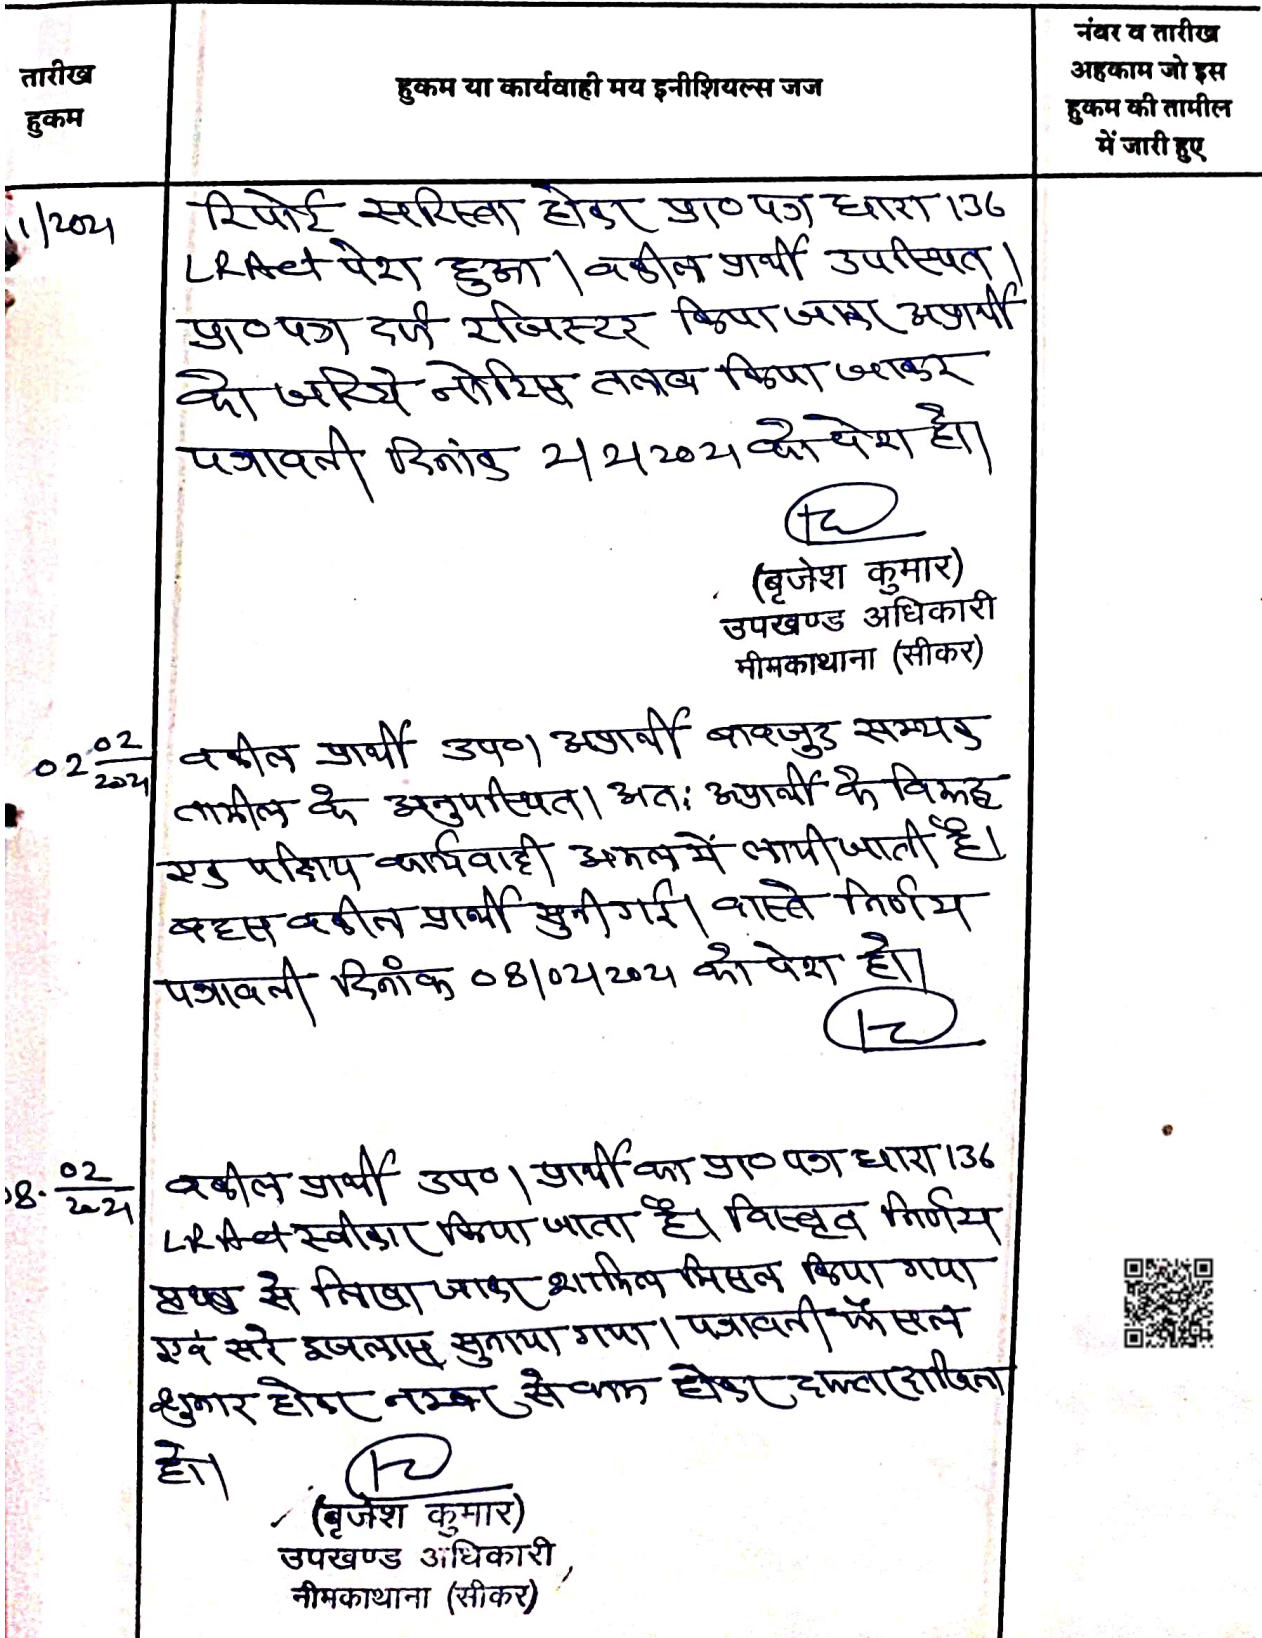 तारीख
हुकम
हुकम या कार्यवाही मय इनीशियल्स जज
नंबर व तारीख
अहकाम जो इस
हुकम की तामील
में जारी हुए
1/2021
रिपोर्ट सरिस्ता होकर प्रा० पत्र धारा 136
LRAct पेश हुआ। वकील प्रार्थी उपस्थित।
प्रा० पत्र दर्ज रजिस्टर किया जाकर अप्रार्थी
को जरिये नोटिस तलब किया जाकर
पत्रावली दिनांक 2/2/2021 को पेश हो।
(बृजेश कुमार)
उपखण्ड अधिकारी
नीमकाथाना (सीकर)
02 02/2021
वकील प्रार्थी उप०। अप्रार्थी बावजुद सम्यक
तामील के अनुपस्थित। अतः अप्रार्थी के विरूद्ध
एक पक्षिय कार्यवाही अमल में लायी जाती है।
बहस वकील प्रार्थी सुनी गई। वास्ते निर्णय
पत्रावली दिनांक 08/02/2021 को पेश हो।
08. 02/2021
वकील प्रार्थी उप०। प्रार्थी का प्रा० पत्र धारा 136
LRAct स्वीकार किया जाता है। विस्तृत निर्णय
पृथक से लिखा जाकर शामिल मिसल किया गया
एवं सरे इजलास सुनाया गया। पत्रावली फैसल
शुमार होकर नम्बर से कम होकर दाखिल
हो।
(बृजेश कुमार)
उपखण्ड अधिकारी
नीमकाथाना (सीकर)